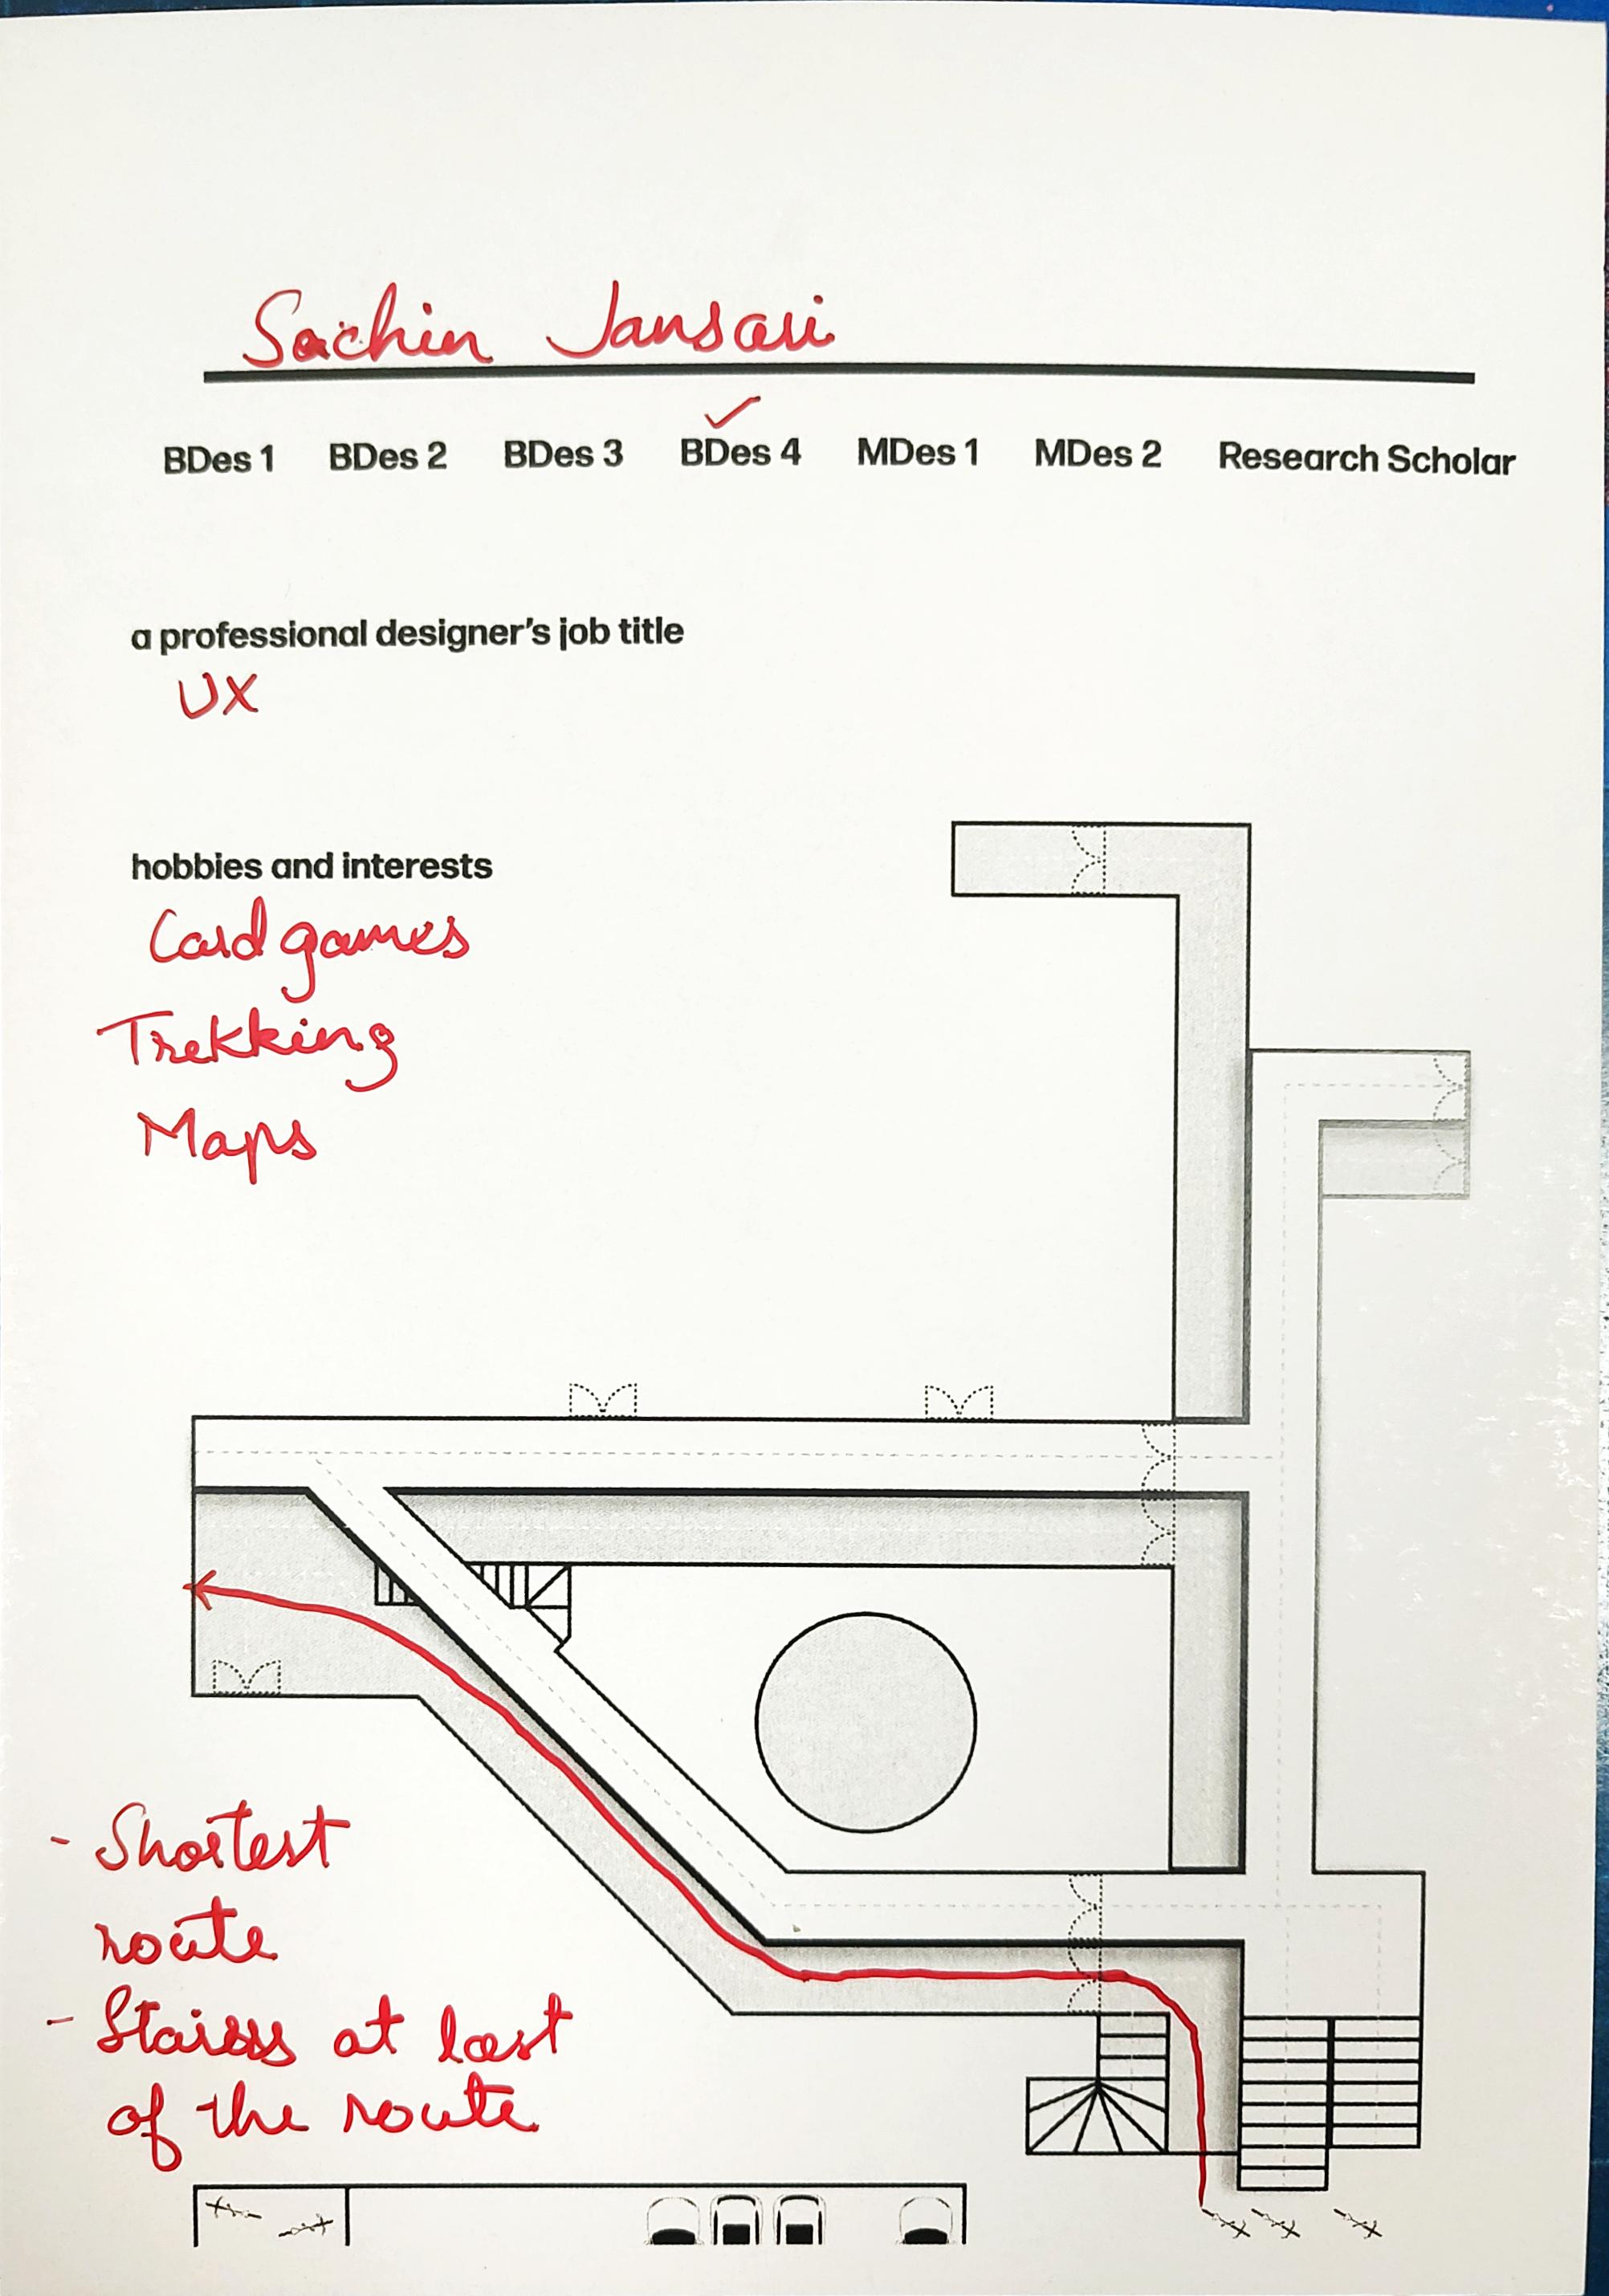 Sachin Jansari
BDes 1 BDes 2 BDes 3 BDes 4 MDes 1 MDes 2 Research Scholar
a professional designer's job title
UX
hobbies and interests
Card games
Trekking
Maps
- Shortest
route
- Stairs at last
of the route